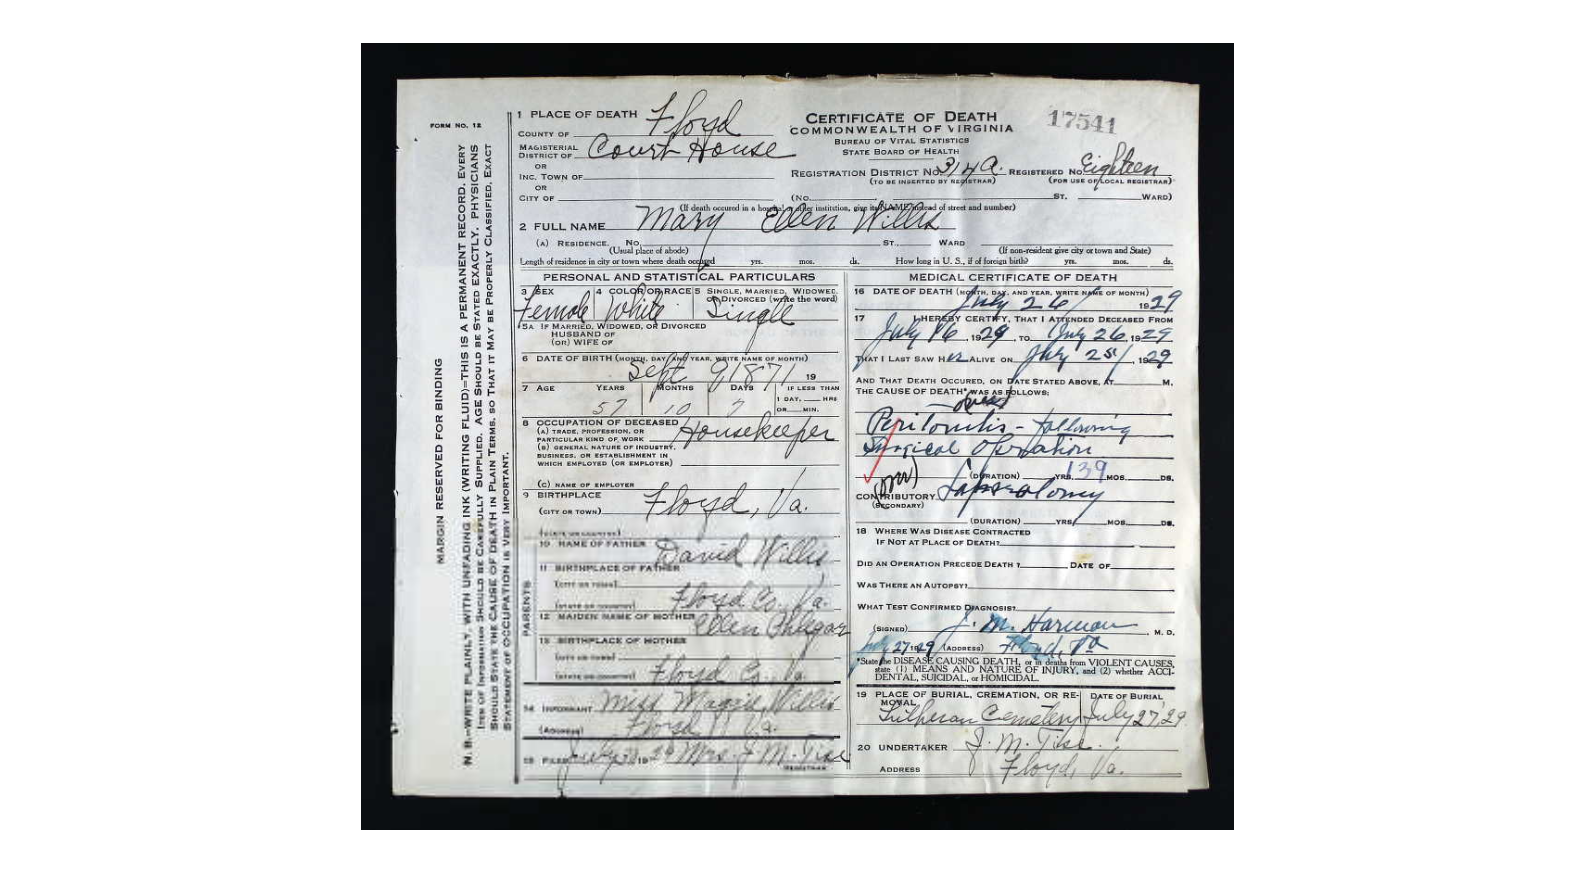 FORM NO. 12
MARGIN RESERVED FOR BINDING
N. B.—WRITE PLAINLY, WITH UNFADING INK (WRITING FLUID)—THIS IS A PERMANENT RECORD. EVERY
ITEM OF INFORMATION SHOULD BE CAREFULLY SUPPLIED. AGE SHOULD BE STATED EXACTLY. PHYSICIANS
SHOULD STATE THE CAUSE OF DEATH IN PLAIN TERMS, SO THAT IT MAY BE PROPERLY CLASSIFIED. EXACT
STATEMENT OF OCCUPATION IS VERY IMPORTANT.
1 PLACE OF DEATH
COUNTY OF Floyd
MAGISTERIAL DISTRICT OF Court House
OR
INC. TOWN OF
OR
CITY OF
CERTIFICATE OF DEATH
COMMONWEALTH OF VIRGINIA
BUREAU OF VITAL STATISTICS
STATE BOARD OF HEALTH
17541
REGISTRATION DISTRICT NO. 314A. REGISTERED NO. Eighteen
(TO BE INSERTED BY REGISTRAR) (FOR USE OF LOCAL REGISTRAR)
(NO. ST. WARD)
(If death occured in a hospital or other institution, give its NAME instead of street and number)
2 FULL NAME Mary Ellen Willis
(A) RESIDENCE. NO. ST. WARD
(Usual place of abode) (If non-resident give city or town and State)
Length of residence in city or town where death occured yrs. mos. ds. How long in U. S., if of foreign birth? yrs. mos. ds.
PERSONAL AND STATISTICAL PARTICULARS
3 SEX 4 COLOR OR RACE 5 SINGLE, MARRIED, WIDOWED,
OR DIVORCED (write the word)
Female White Single
5A IF MARRIED, WIDOWED, OR DIVORCED
HUSBAND OF
(OR) WIFE OF
6 DATE OF BIRTH (MONTH, DAY, AND YEAR, WRITE NAME OF MONTH)
Sept 9 1871 19
7 AGE YEARS MONTHS DAYS IF LESS THAN
1 DAY, HRS
OR MIN.
57 10 7
8 OCCUPATION OF DECEASED
(A) TRADE, PROFESSION, OR
PARTICULAR KIND OF WORK Housekeeper
(B) GENERAL NATURE OF INDUSTRY,
BUSINESS, OR ESTABLISHMENT IN
WHICH EMPLOYED (OR EMPLOYER)
(C) NAME OF EMPLOYER
9 BIRTHPLACE
(CITY OR TOWN) Floyd, Va.
(STATE OR COUNTRY)
PARENTS
10 NAME OF FATHER David Willis
11 BIRTHPLACE OF FATHER
(CITY OR TOWN)
(STATE OR COUNTRY) Floyd Co. Va.
12 MAIDEN NAME OF MOTHER Ellen Phlegar
13 BIRTHPLACE OF MOTHER
(CITY OR TOWN)
(STATE OR COUNTRY) Floyd Co. Va
14 INFORMANT Miss Maggie Willis
(Address) Floyd Va.
15 FILED July 1929 Mrs. J. M. Tise
REGISTRAR
MEDICAL CERTIFICATE OF DEATH
16 DATE OF DEATH (MONTH, DAY, AND YEAR, WRITE NAME OF MONTH)
July 26 1929
17 I HEREBY CERTIFY, THAT I ATTENDED DECEASED FROM
July 16, 1929, TO July 26, 1929
THAT I LAST SAW Her ALIVE ON July 25, 1929
AND THAT DEATH OCCURED, ON DATE STATED ABOVE, AT M.
THE CAUSE OF DEATH* WAS AS FOLLOWS:
Peritonitis - following
Surgical Operation
(DURATION) YRS. 139 MOS. DS.
CONTRIBUTORY Laparotomy
(SECONDARY)
(DURATION) YRS. MOS. DS.
18 WHERE WAS DISEASE CONTRACTED
IF NOT AT PLACE OF DEATH?
DID AN OPERATION PRECEDE DEATH? DATE OF
WAS THERE AN AUTOPSY?
WHAT TEST CONFIRMED DIAGNOSIS?
(SIGNED) J. M. Harman, M. D.
July 27 1929 (ADDRESS) Floyd, Va
*State the DISEASE CAUSING DEATH, or in deaths from VIOLENT CAUSES,
state (1) MEANS AND NATURE OF INJURY, and (2) whether ACCI-
DENTAL, SUICIDAL, or HOMICIDAL.
19 PLACE OF BURIAL, CREMATION, OR RE- DATE OF BURIAL
MOVAL,
Lutheran Cemetery July 27, 29
20 UNDERTAKER J. M. Tise.
ADDRESS Floyd, Va.